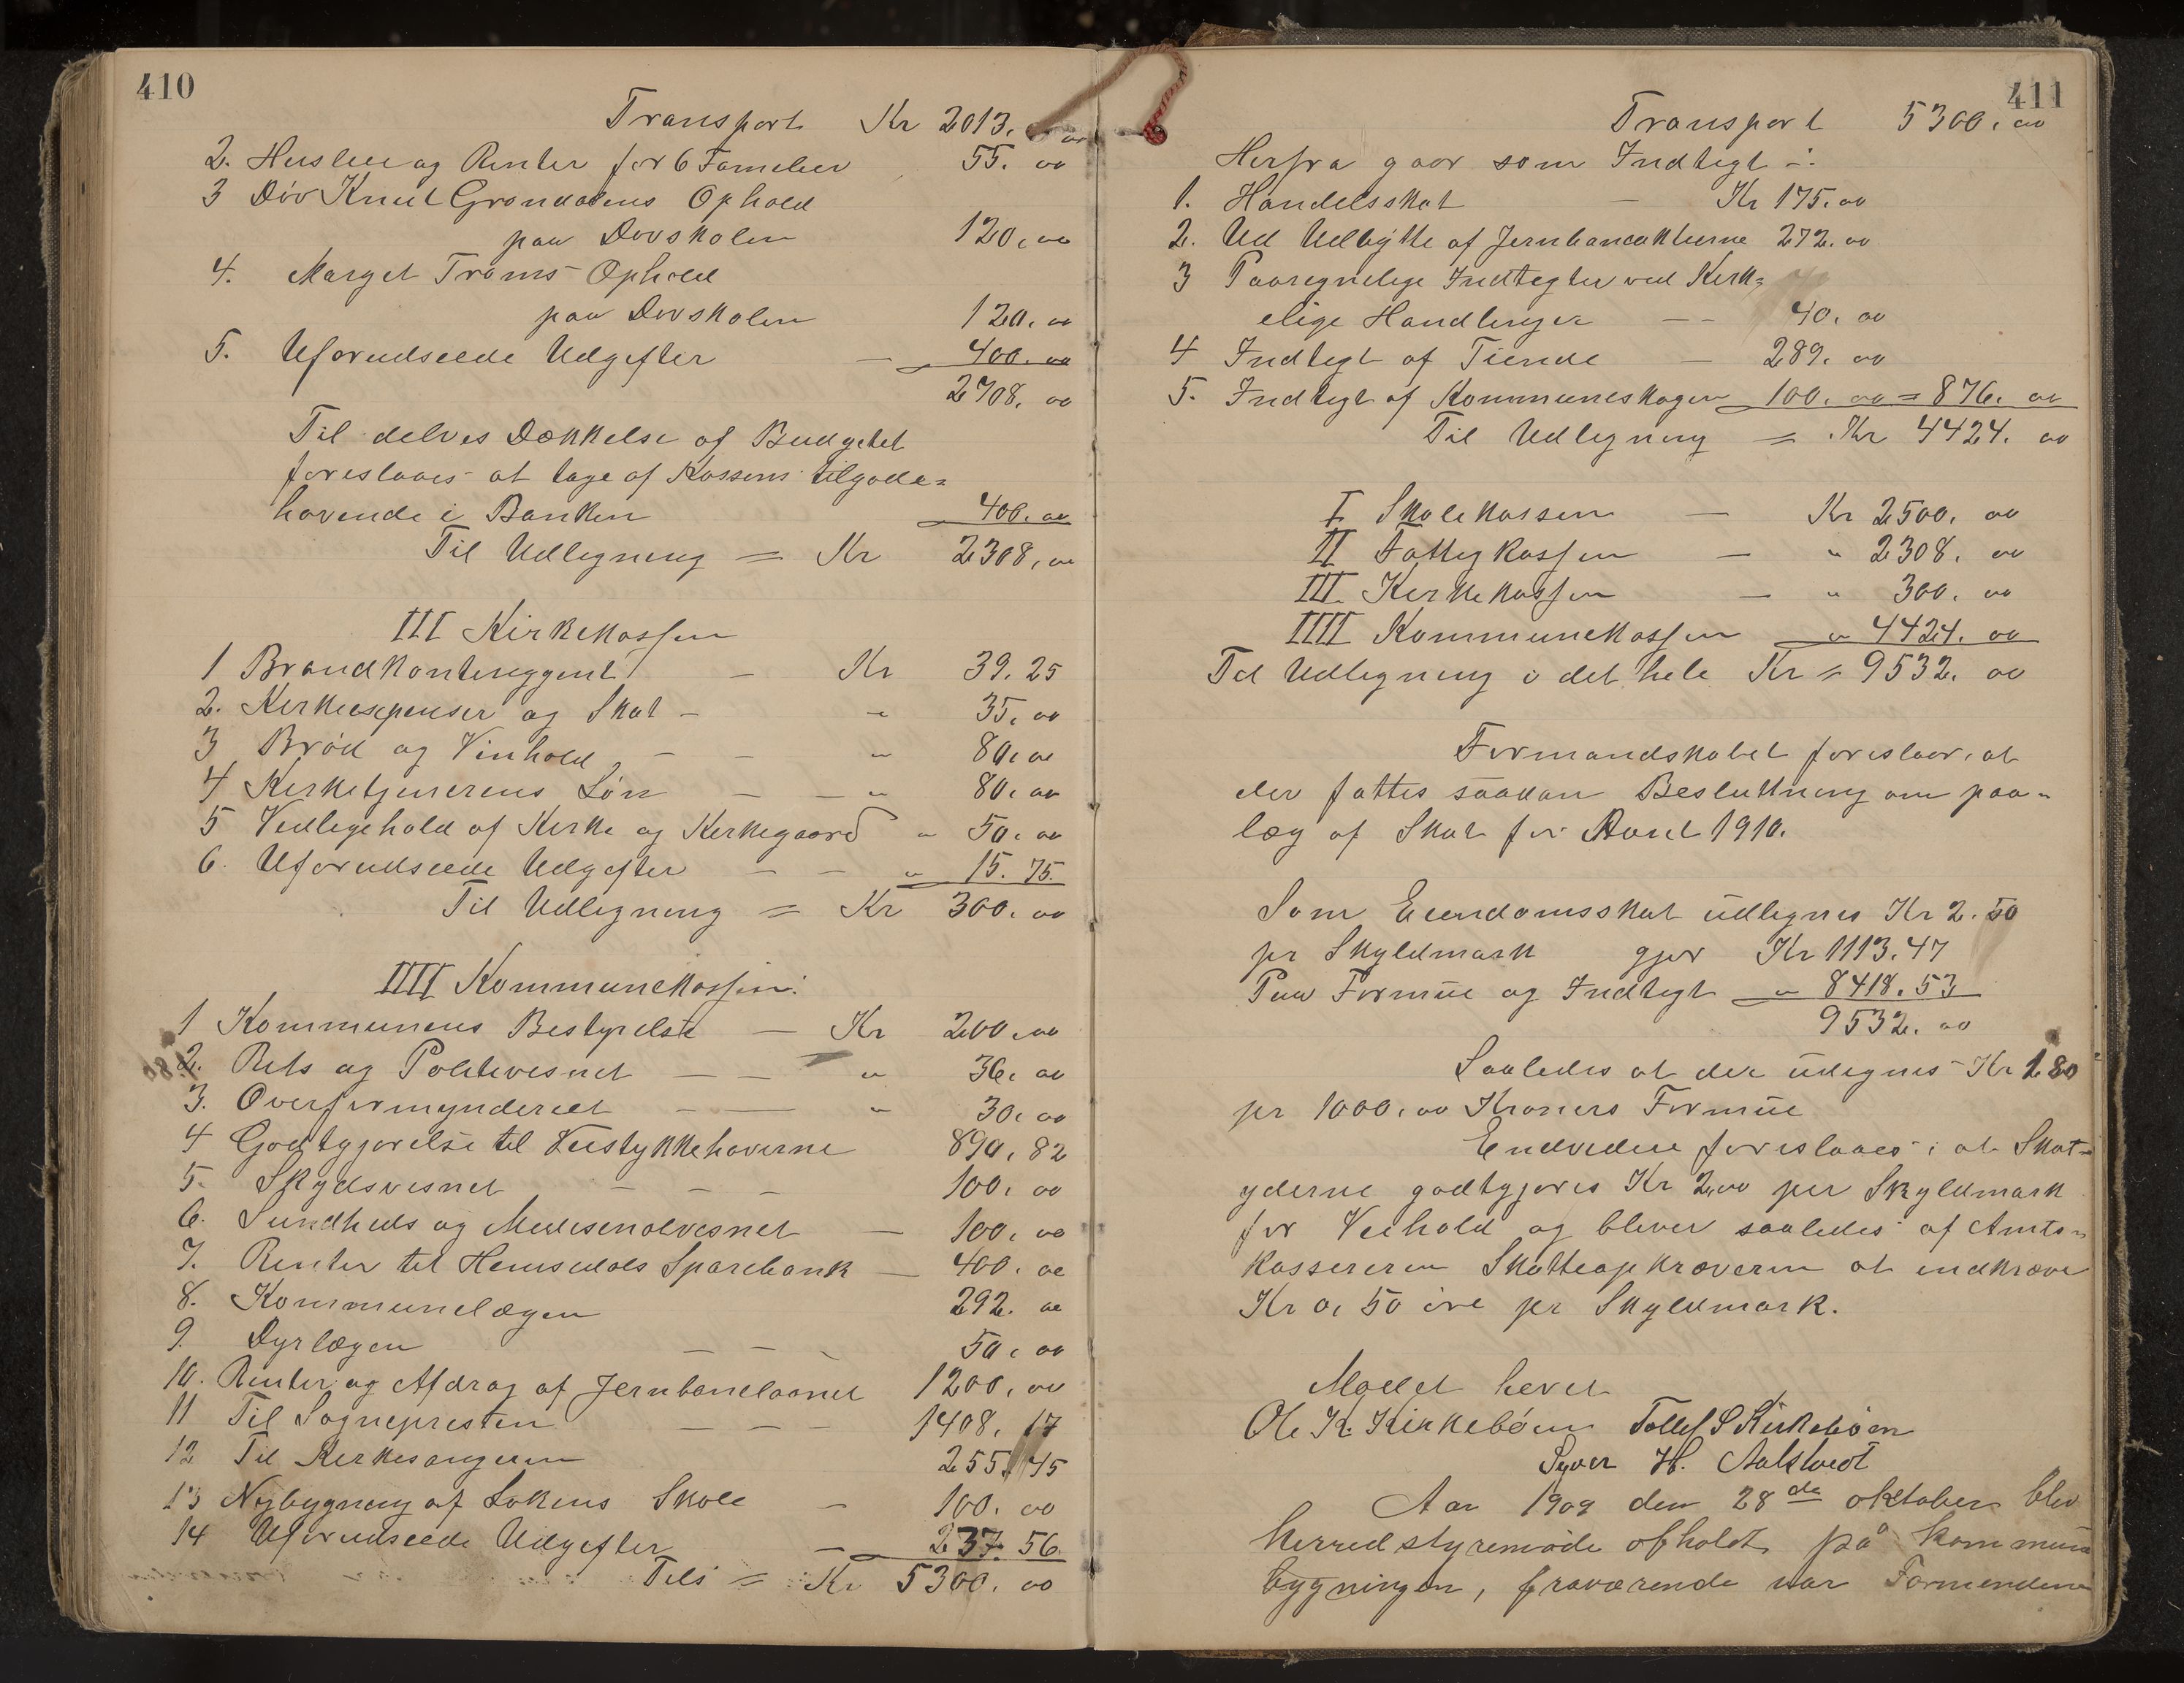 410
Transport Kr 2013. oo
2. Husleie og Renter for 6 Familier 55. oo
3 Døv Knut Grøndalens Ophold
paa Døvskolen 120. oo
4. Marget Trøms Ophold
paa Døvskolen 120. oo
5. Uforudseede Udgifter — 400. oo
2708. oo
Til delvis Dækkelse af Budgetet
foreslaaes at tage af Kassens tilgode=
havende i Banken 400. oo
Til Udligning = Kr 2308. oo
III Kirkekassen
1 Brandkontinggent — Kr 39. 25
2. Kirkeexpenser og Skat — " 35. oo
3 Brød og Vinhold — — " 80. oo
4 Kirketjenerens Løn — — " 80. oo
5 Vedligehold af Kirke og Kirkegaard " 50. oo
6. Uforudseede Udgifter — — " 15. 75.
Til Udligning = Kr 300. oo
IIII Kommunekassen:
1 Kommunens Bestyrelse — Kr 200. oo
2. Rets og Politivesnet — — " 36. oo
3. Overformynderiet — — " 30. oo
4 Godtgjørelse til Veistykkehaverne 890. 82
5. Skydsvesnet — — — 100. oo
6. Sundheds og Medisinalvesnet — 100. oo
7. Renter til Hemsedals Sparebank — 400. oo
8. Kommunelægen 292. oo
9. Dyrlægen — — — 50. oo
10. Renter og Afdrag af Jernbanelaanet 1200. oo
11 Til Sognepresten — — — 1408. 17
12 Til Kirkesangeren 255. 45
13 Nybygning af Løkens Skole — 100. oo
14 Uforudseede Udgifter — 237. 56
Tils = Kr 5300. oo
411
Transport 5300. oo
Herfra gaar som Indtegt ÷:
1. Handelsskat — Kr 175. oo
2. Ud Udbytte af Jernbaneaktierne 272. oo
3 Paaregnelige Indtegter ved Kirk=
elige Handlinger — — 40. oo
4 Indtegt af Tiende — 289. oo
5. Indtegt af Kommuneskogen 100. oo = 876. oo
Til Udligning = Kr 4424. oo
I Skolekassen — Kr 2500. oo
II Fattigkassen — " 2308. oo
III Kirkekassen — " 300. oo
IIII Kommunekassen " 4424. oo
Til Udligning i det hele Kr = 9532. oo
Formandskabet foreslaar, at
der fattes saadan Besluttning om paa-
læg af Skat for Aaret 1910.
Som Eiendomsskat udlignes Kr 2. 50
pr Skyldmark gjør Kr 1113. 47
Paa Formue og Indtegt " 8418. 53
9532. oo
Saaledes at der udlignes Kr 1.80
pr 1000. oo Kroners Formue
Endvidere foreslaaes, at Skat-
yderne godtgjøres Kr 2,oo per Skyldmark
for Veihold og bliver saaledes af Amts-
kassereren Skatteopkræveren at indkræve
Kr 0, 50 øre pr Skyldmark.
Mødet hevet
Ole K. Kirkebøen Tollef S Kirkebøen
Syver H. Aalstveit
Aar 1909 den 28de oktober blev
herredstyremøde afholdt på kommune
bygningen, fraværende var Formendene